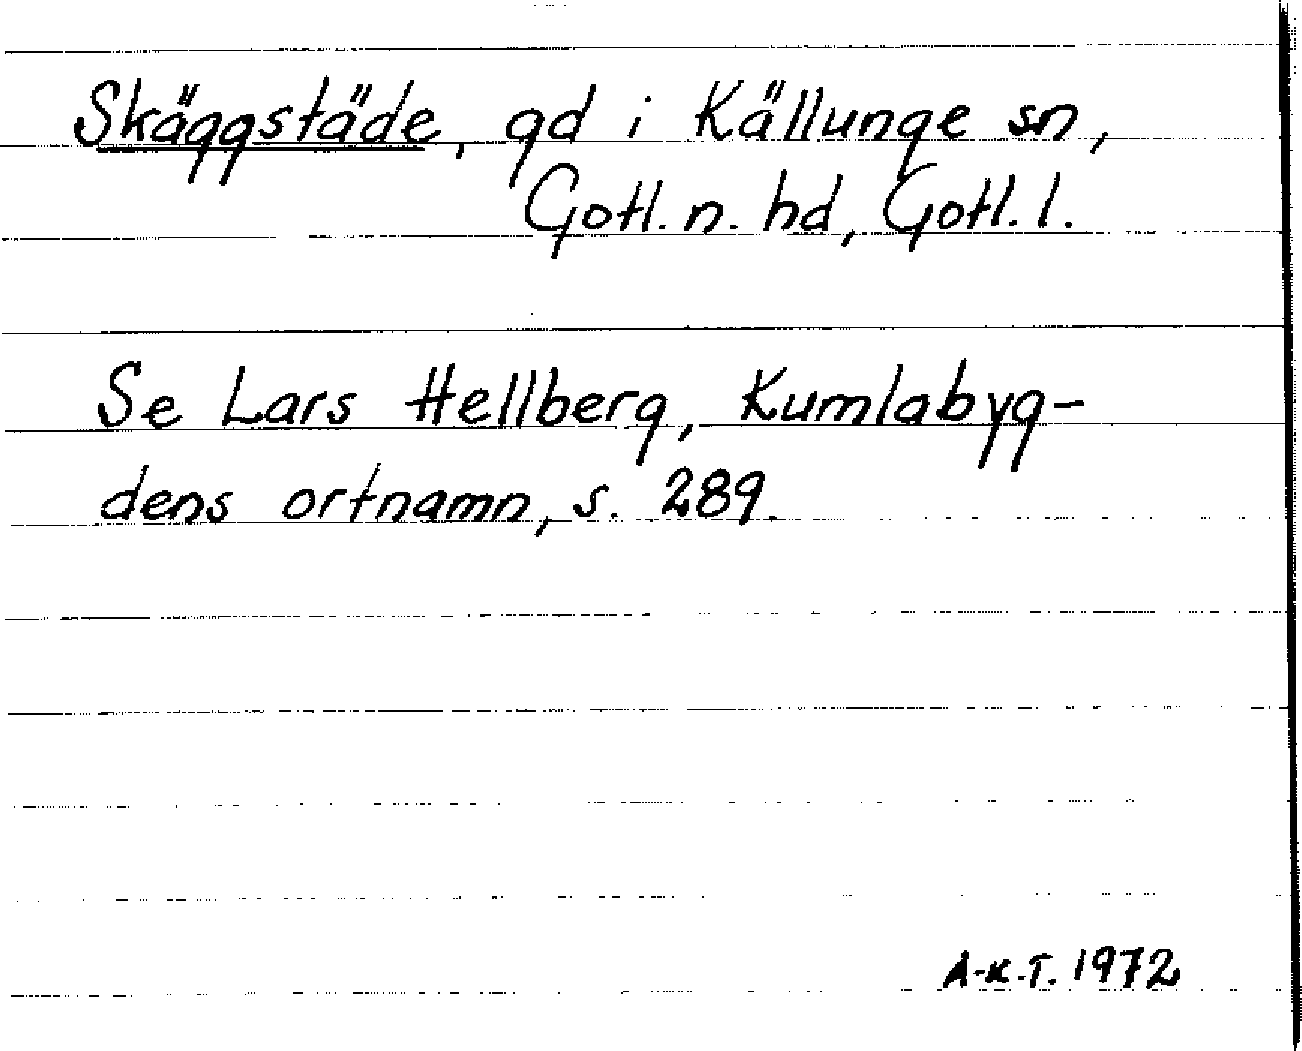 Skäggstäde, gd i Källunge sn,
Gotl. n. hd, Gotl. l.
Se Lars Hellberg, Kumlabyg-
dens ortnamn, s. 289.
A-K.T. 1972